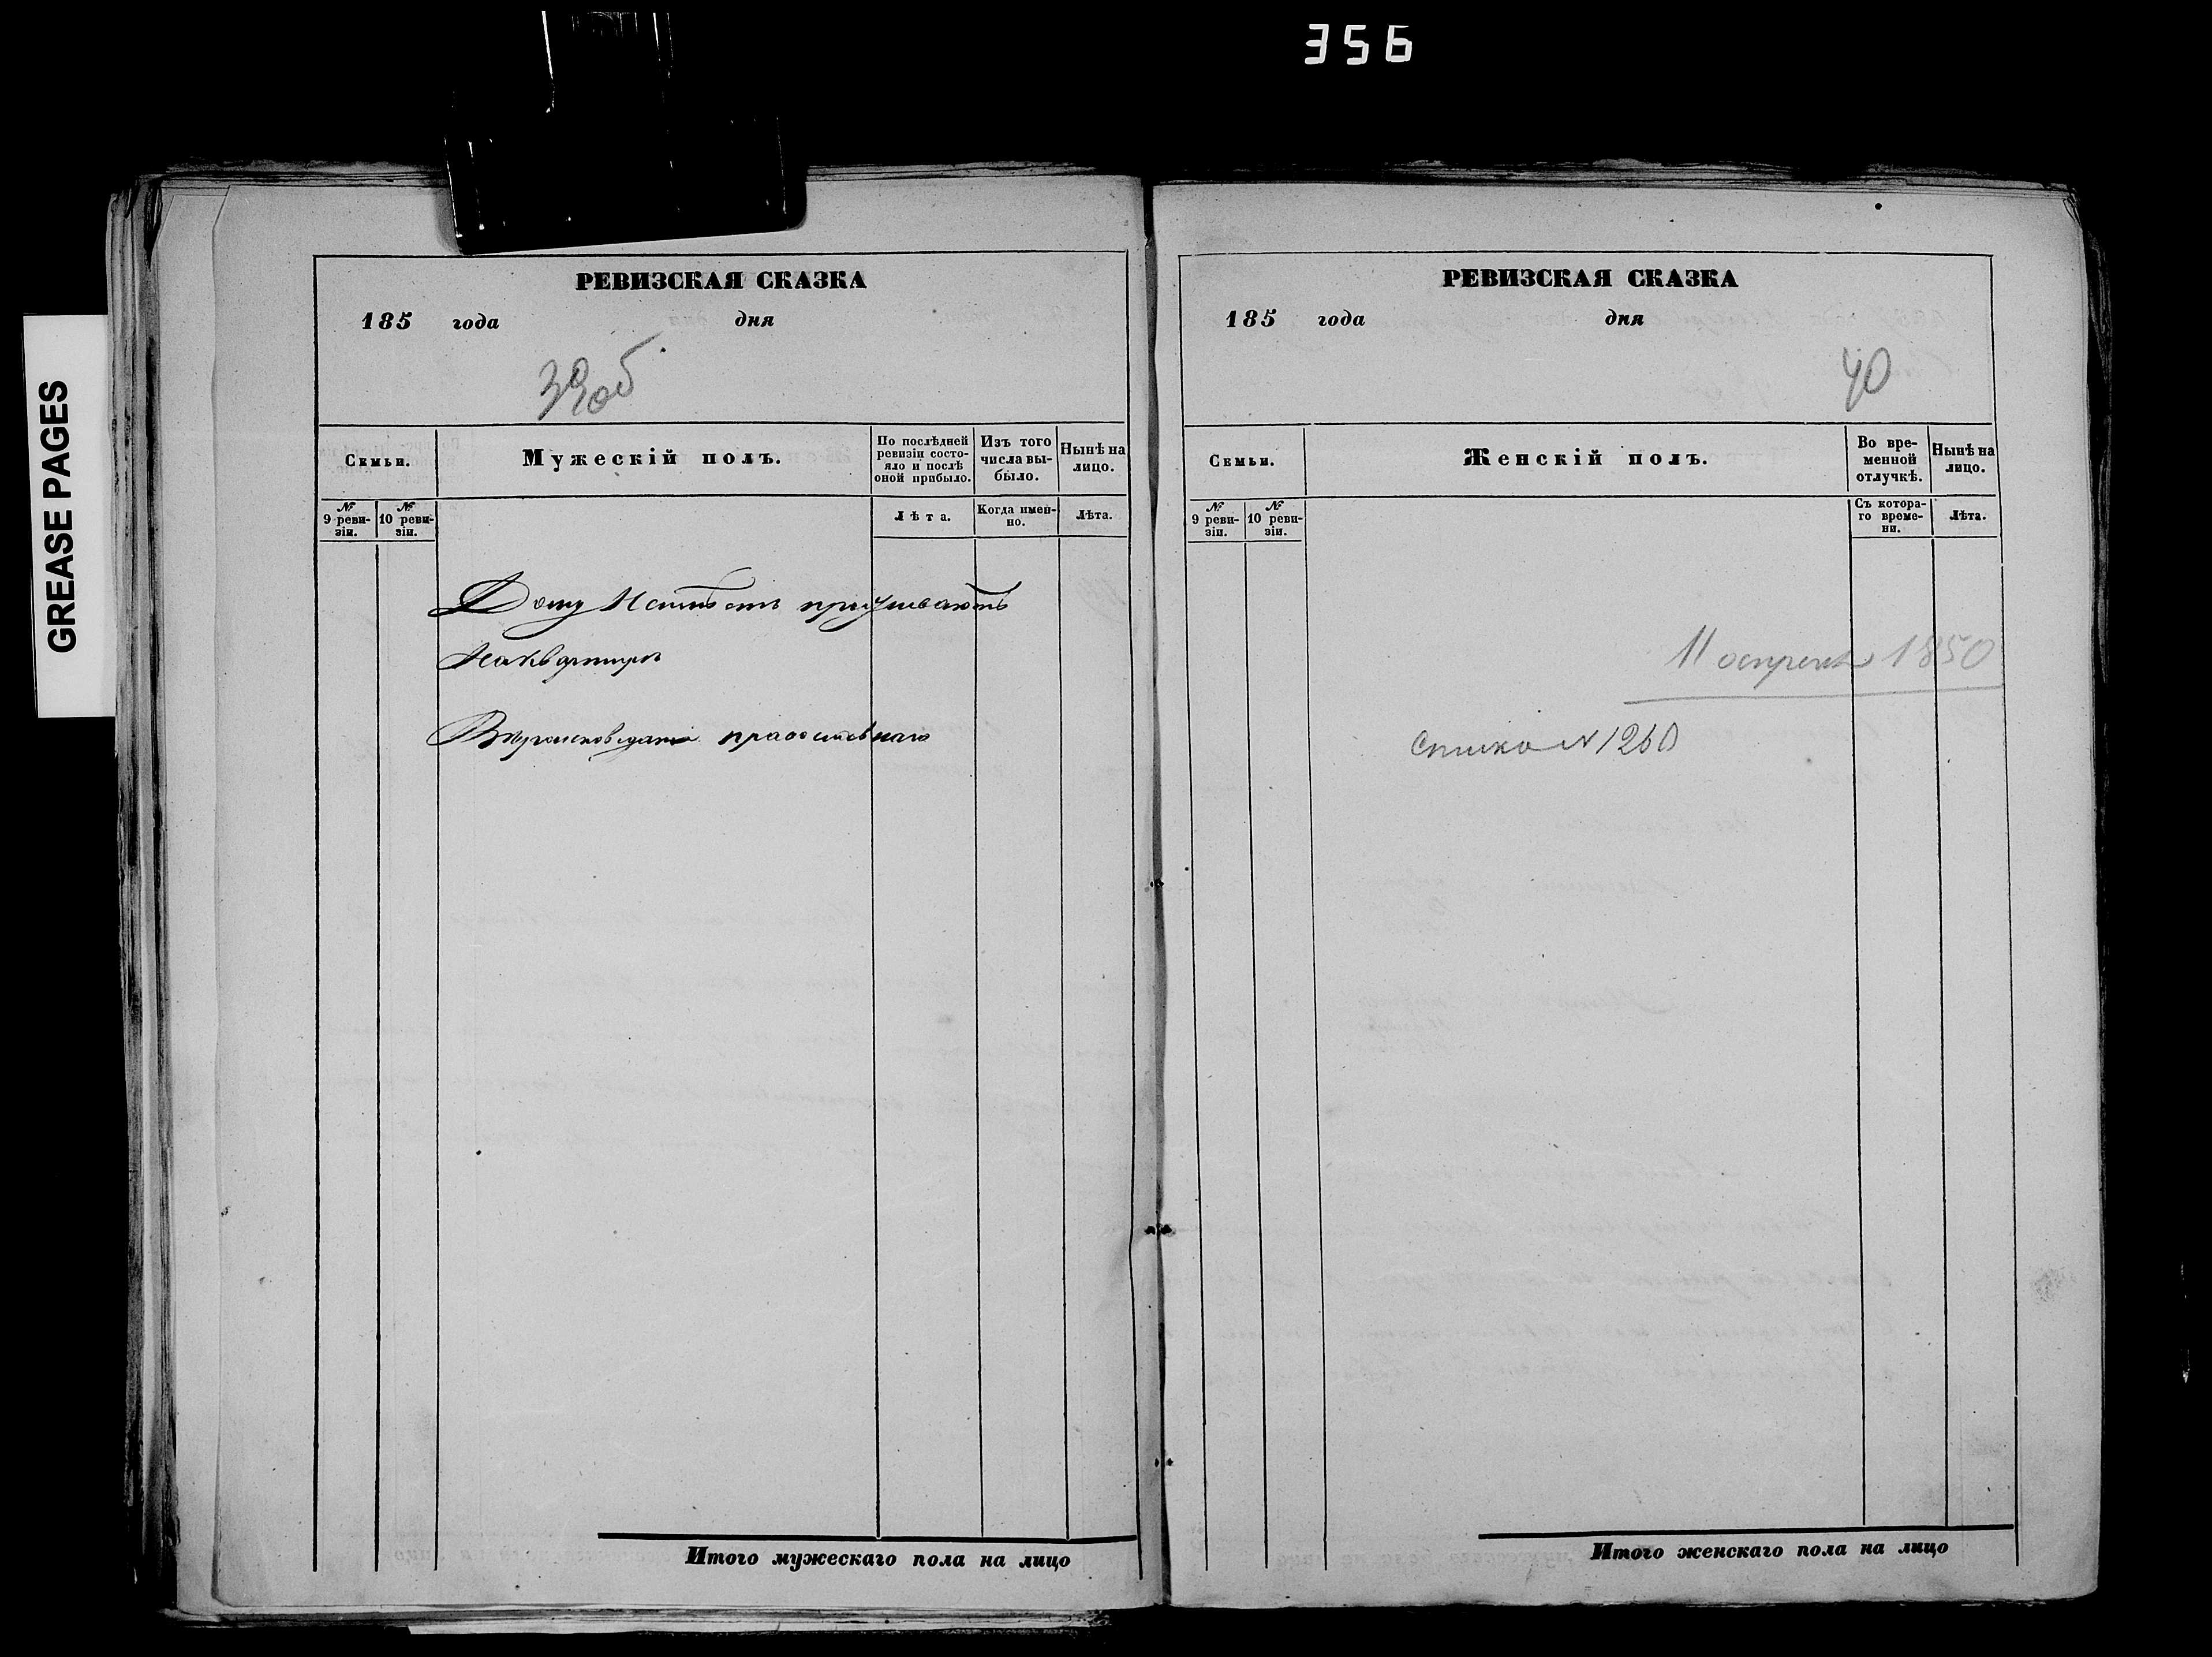 356
GREASE PAGES
РЕВИЗСКАЯ СКАЗКА
185 года дня
39об
Семьи.
Мужескій полъ.
По послѣдней ревизіи состояло и послѣ оной прибыло.
Изъ того числа выбыло.
Нынѣ на лицо.
№ 9 ревизіи.
№ 10 ревизіи.
Лѣта.
Когда именно.
Лѣта.
Дому
Наквартирѣ
православнаго
Итого мужескаго пола на лицо
РЕВИЗСКАЯ СКАЗКА
185 года дня
40
Семьи.
Женскій полъ.
Во временной отлучкѣ.
Нынѣ на лицо.
№ 9 ревизіи.
№ 10 ревизіи.
Съ котораго времени.
Лѣта.
11 апреля 1850
N 1260
Итого женскаго пола на лицо